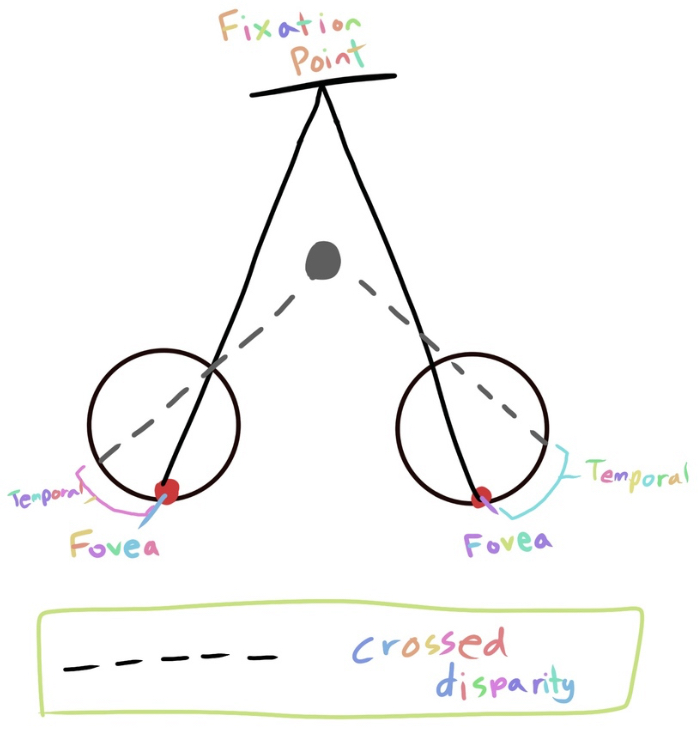 Fixation
Point
Temporal
Temporal
Fovea
Fovea
crossed
disparity